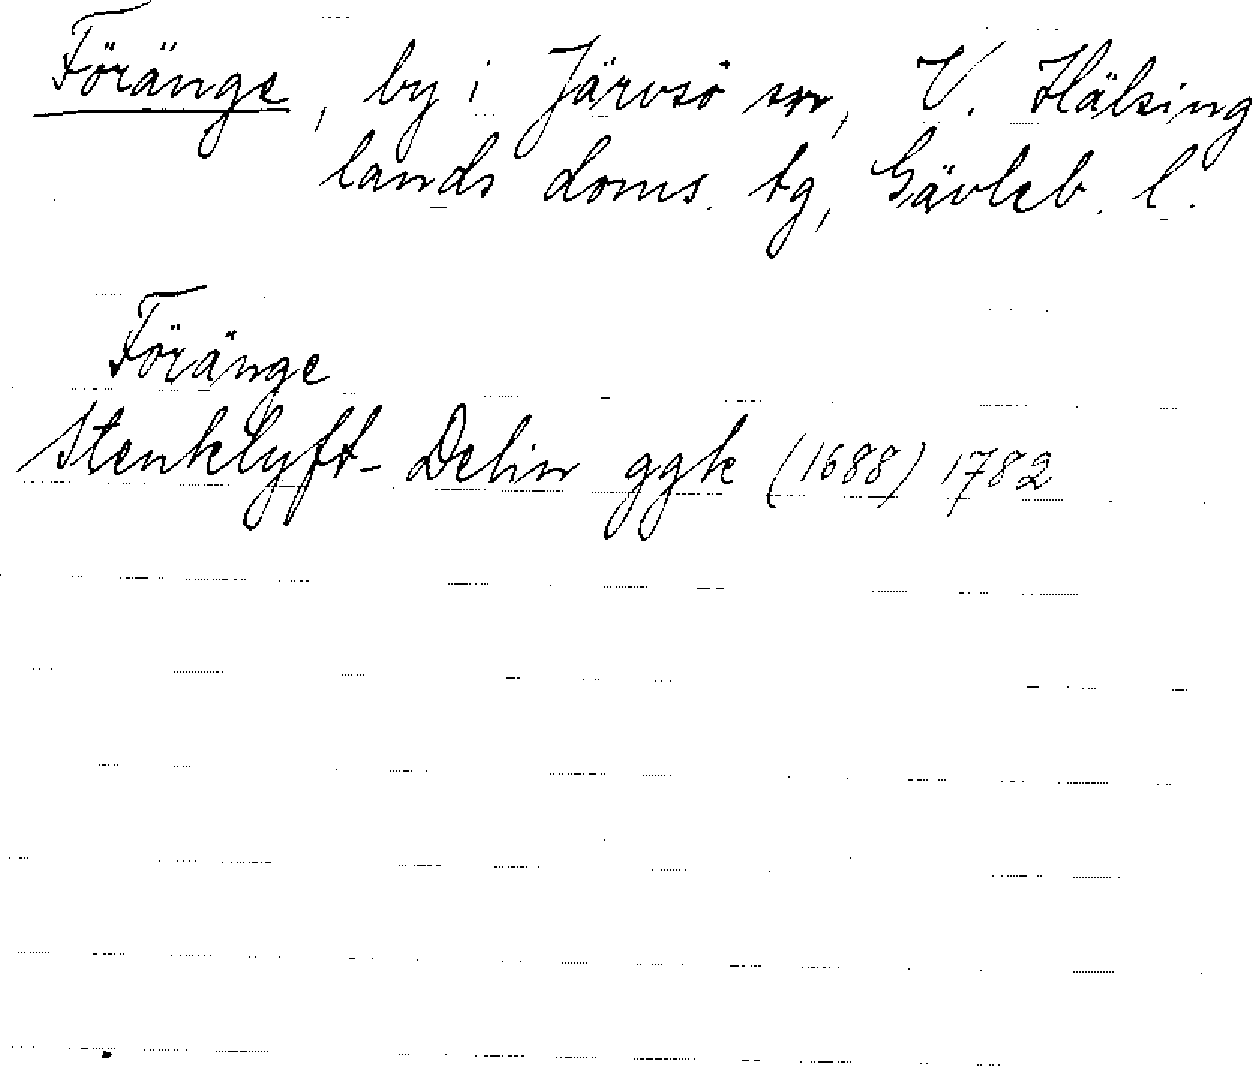 Föränge, by i Järvsö sn, V. Hälsing
lands doms. tg, Gävleb. l.
Föränge
Stenklyft- Delin ggk (1688) 1782